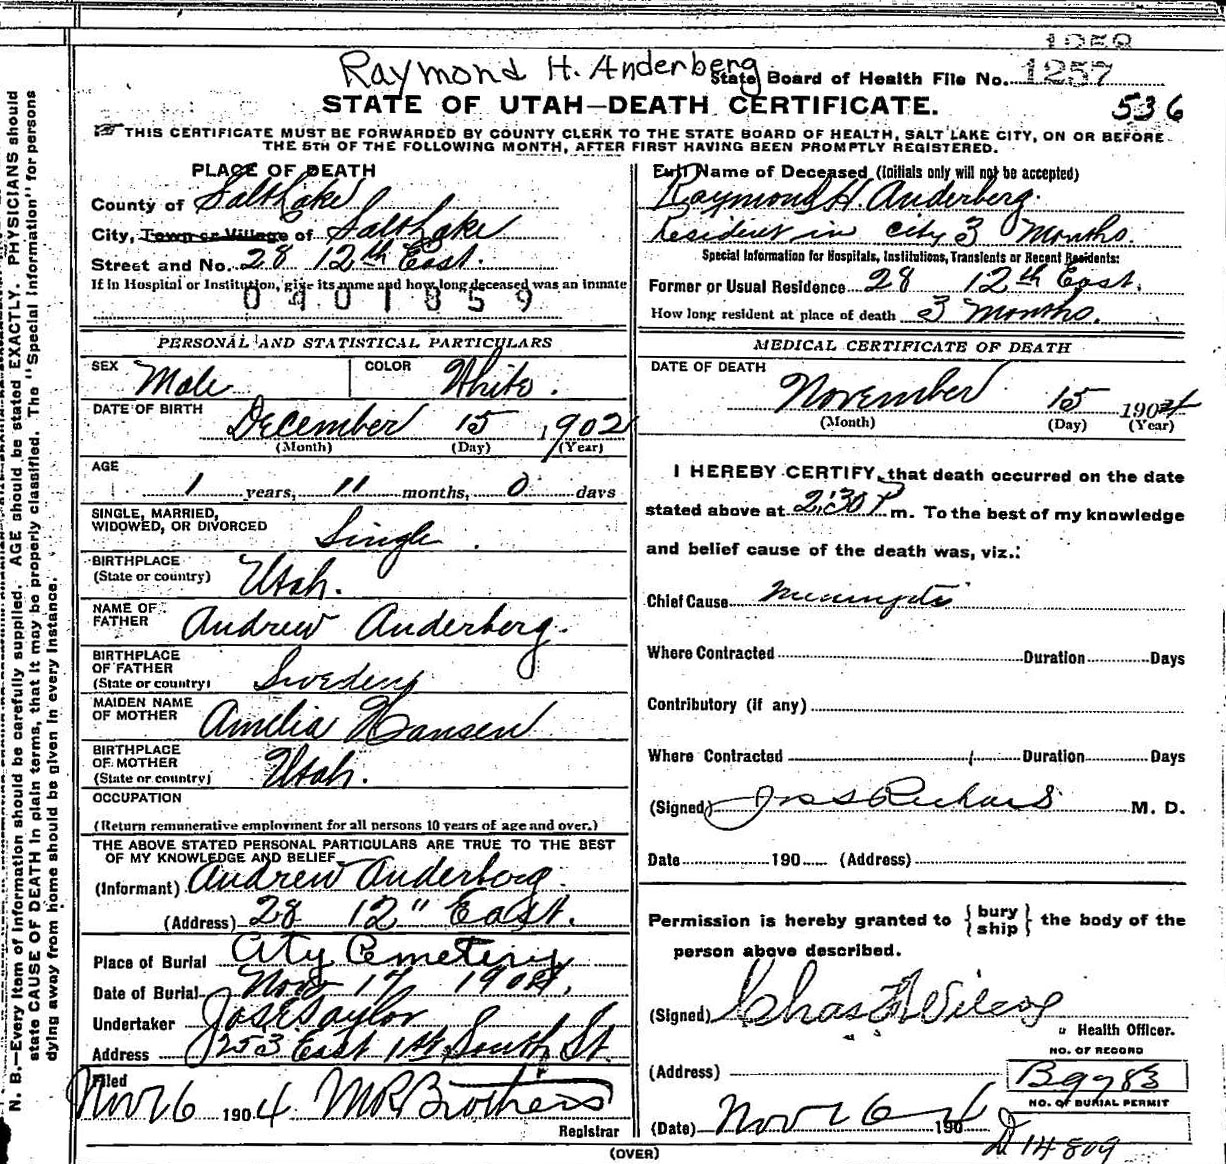 1258
Raymond H. Anderberg
State Board of Health File No. 1257
STATE OF UTAH—DEATH CERTIFICATE.
536
THIS CERTIFICATE MUST BE FORWARDED BY COUNTY CLERK TO THE STATE BOARD OF HEALTH, SALT LAKE CITY, ON OR BEFORE
THE 5TH OF THE FOLLOWING MONTH, AFTER FIRST HAVING BEEN PROMPTLY REGISTERED.
PLACE OF DEATH
County of Salt Lake
City, Town or Village of Salt Lake
Street and No. 28 12th East.
If in Hospital or Institution, give its name and how long deceased was an inmate
0401859
PERSONAL AND STATISTICAL PARTICULARS
SEX Male COLOR White.
DATE OF BIRTH December 15, 1902
(Month) (Day) (Year)
AGE
1 years, 11 months, 0 days
SINGLE, MARRIED,
WIDOWED, OR DIVORCED Single.
BIRTHPLACE
(State or country) Utah.
NAME OF
FATHER Andrew Anderberg.
BIRTHPLACE
OF FATHER
(State or country) Sweden
MAIDEN NAME
OF MOTHER Amelia Hansen
BIRTHPLACE
OF MOTHER
(State or country) Utah.
OCCUPATION
(Return remunerative employment for all persons 10 years of age and over.)
THE ABOVE STATED PERSONAL PARTICULARS ARE TRUE TO THE BEST
OF MY KNOWLEDGE AND BELIEF.
(Informant) Andrew Anderberg.
(Address) 28 12" East.
Place of Burial City Cemetery
Date of Burial Nov 17 1904.
Undertaker Jos E Taylor
Address 253 East 1st South St.
Filed
Nov 26 1904. M R Brothers
Registrar
Full Name of Deceased (initials only will not be accepted)
Raymond H. Anderberg.
Resident in city 3 Months.
Special Information for Hospitals, Institutions, Transients or Recent Residents:
Former or Usual Residence 28 12th East.
How long resident at place of death 3 Months.
MEDICAL CERTIFICATE OF DEATH
DATE OF DEATH
November 15 1904
(Month) (Day) (Year)
I HEREBY CERTIFY, that death occurred on the date
stated above at 2:30 P m. To the best of my knowledge
and belief cause of the death was, viz.:
Chief Cause
Where Contracted Duration Days
Contributory (if any)
Where Contracted Duration Days
(Signed) Jos S Richards M. D.
Date 190 (Address)
Permission is hereby granted to {bury ship} the body of the
person above described.
(Signed) Chas F Wilcox
Health Officer.
NO. OF RECORD
(Address) B9783
NO. OF BURIAL PERMIT
(Date) Nov 26 1904
D 14809
(OVER)
N. B.—Every item of information should be carefully supplied. AGE should be stated EXACTLY. PHYSICIANS should
state CAUSE OF DEATH in plain terms, that it may be properly classified. The "Special Information" for persons
dying away from home should be given in every instance.